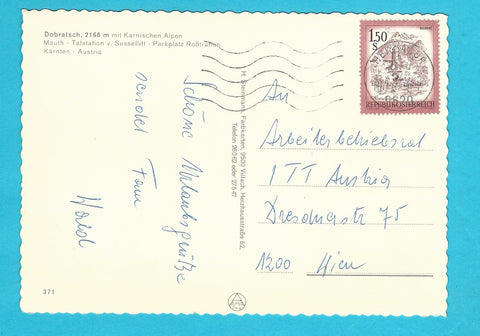 Dobratsch, 2166 m mit Karnischen Alpen
Mauth - Talstation v. Sessellift - Parkplatz Roßtratten
Kärnten - Austria
Schöne Urlaubsgrüße
sendet Fam
H. Steinmann, Farbkarten, 9500 Villach, Heizhausstraße 52,
Telefon
1.50
S
REPUBLIK ÖSTERREICH
An
Arbeiterbetriebsrat
ITT Austria
Dresdnerstr 75
1200 Wien
371